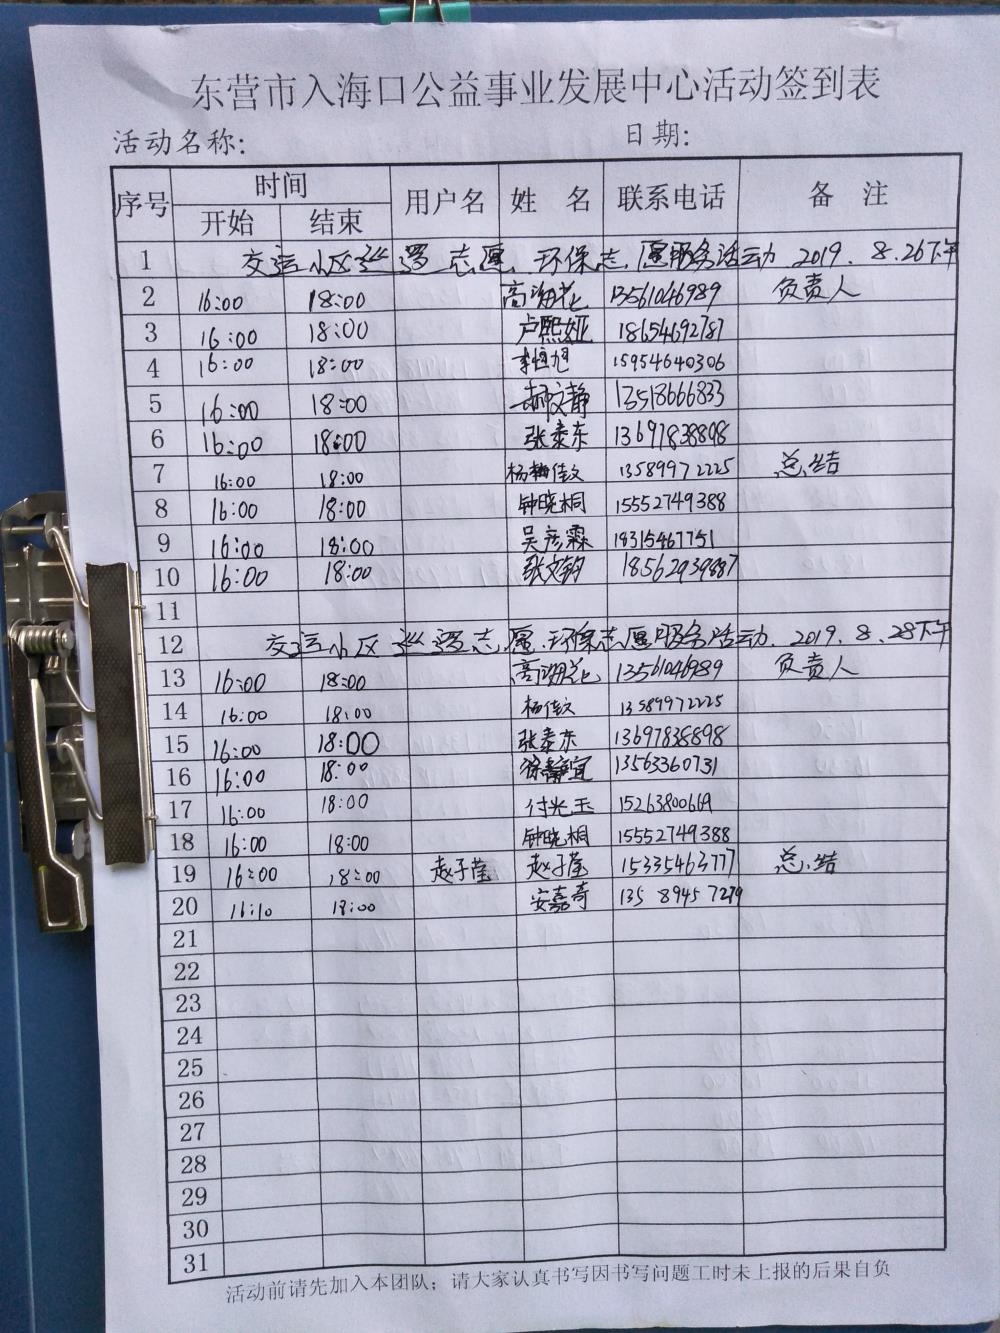 东营市入海口公益事业发展中心活动签到表
活动名称: 日期:
序号 时间 用户名 姓 名 联系电话 备 注
开始 结束
1 交运小区巡逻志愿.环保志愿服务活动 2019.8.26下午
2 16:00 18:00 高海花 13561046989 负责人
3 16:00 18:00 卢熙娅 18654692787
4 16:00 18:00 李恒旭 15954640306
5 16:00 18:00 郝文静 13518666833
6 16:00 18:00 张泰东 13697838898
7 16:00 18:00 杨佳文 13589972225 总结
8 16:00 18:00 钟晓桐 15552749388
9 16:00 18:00 吴彦霖 18315467751
10 16:00 18:00 张文钧 18562939887
11
12 交运小区巡逻志愿.环保志愿服务活动.2019.8.28下午
13 16:00 18:00 高海花 13561046989 负责人
14 16:00 18:00 杨佳文 13589972225
15 16:00 18:00 张泰东 13697838898
16 16:00 18:00 徐静宜 13563360731
17 16:00 18:00 付光玉 15263800669
18 16:00 18:00 钟晓桐 15552749388
19 16:00 18:00 赵子莹 赵子莹 15335463777 总结
20 16:10 18:00 安嘉奇 135 8945 7279
21
22
23
24
25
26
27
28
29
30
31
活动前请先加入本团队；请大家认真书写因书写问题工时未上报的后果自负